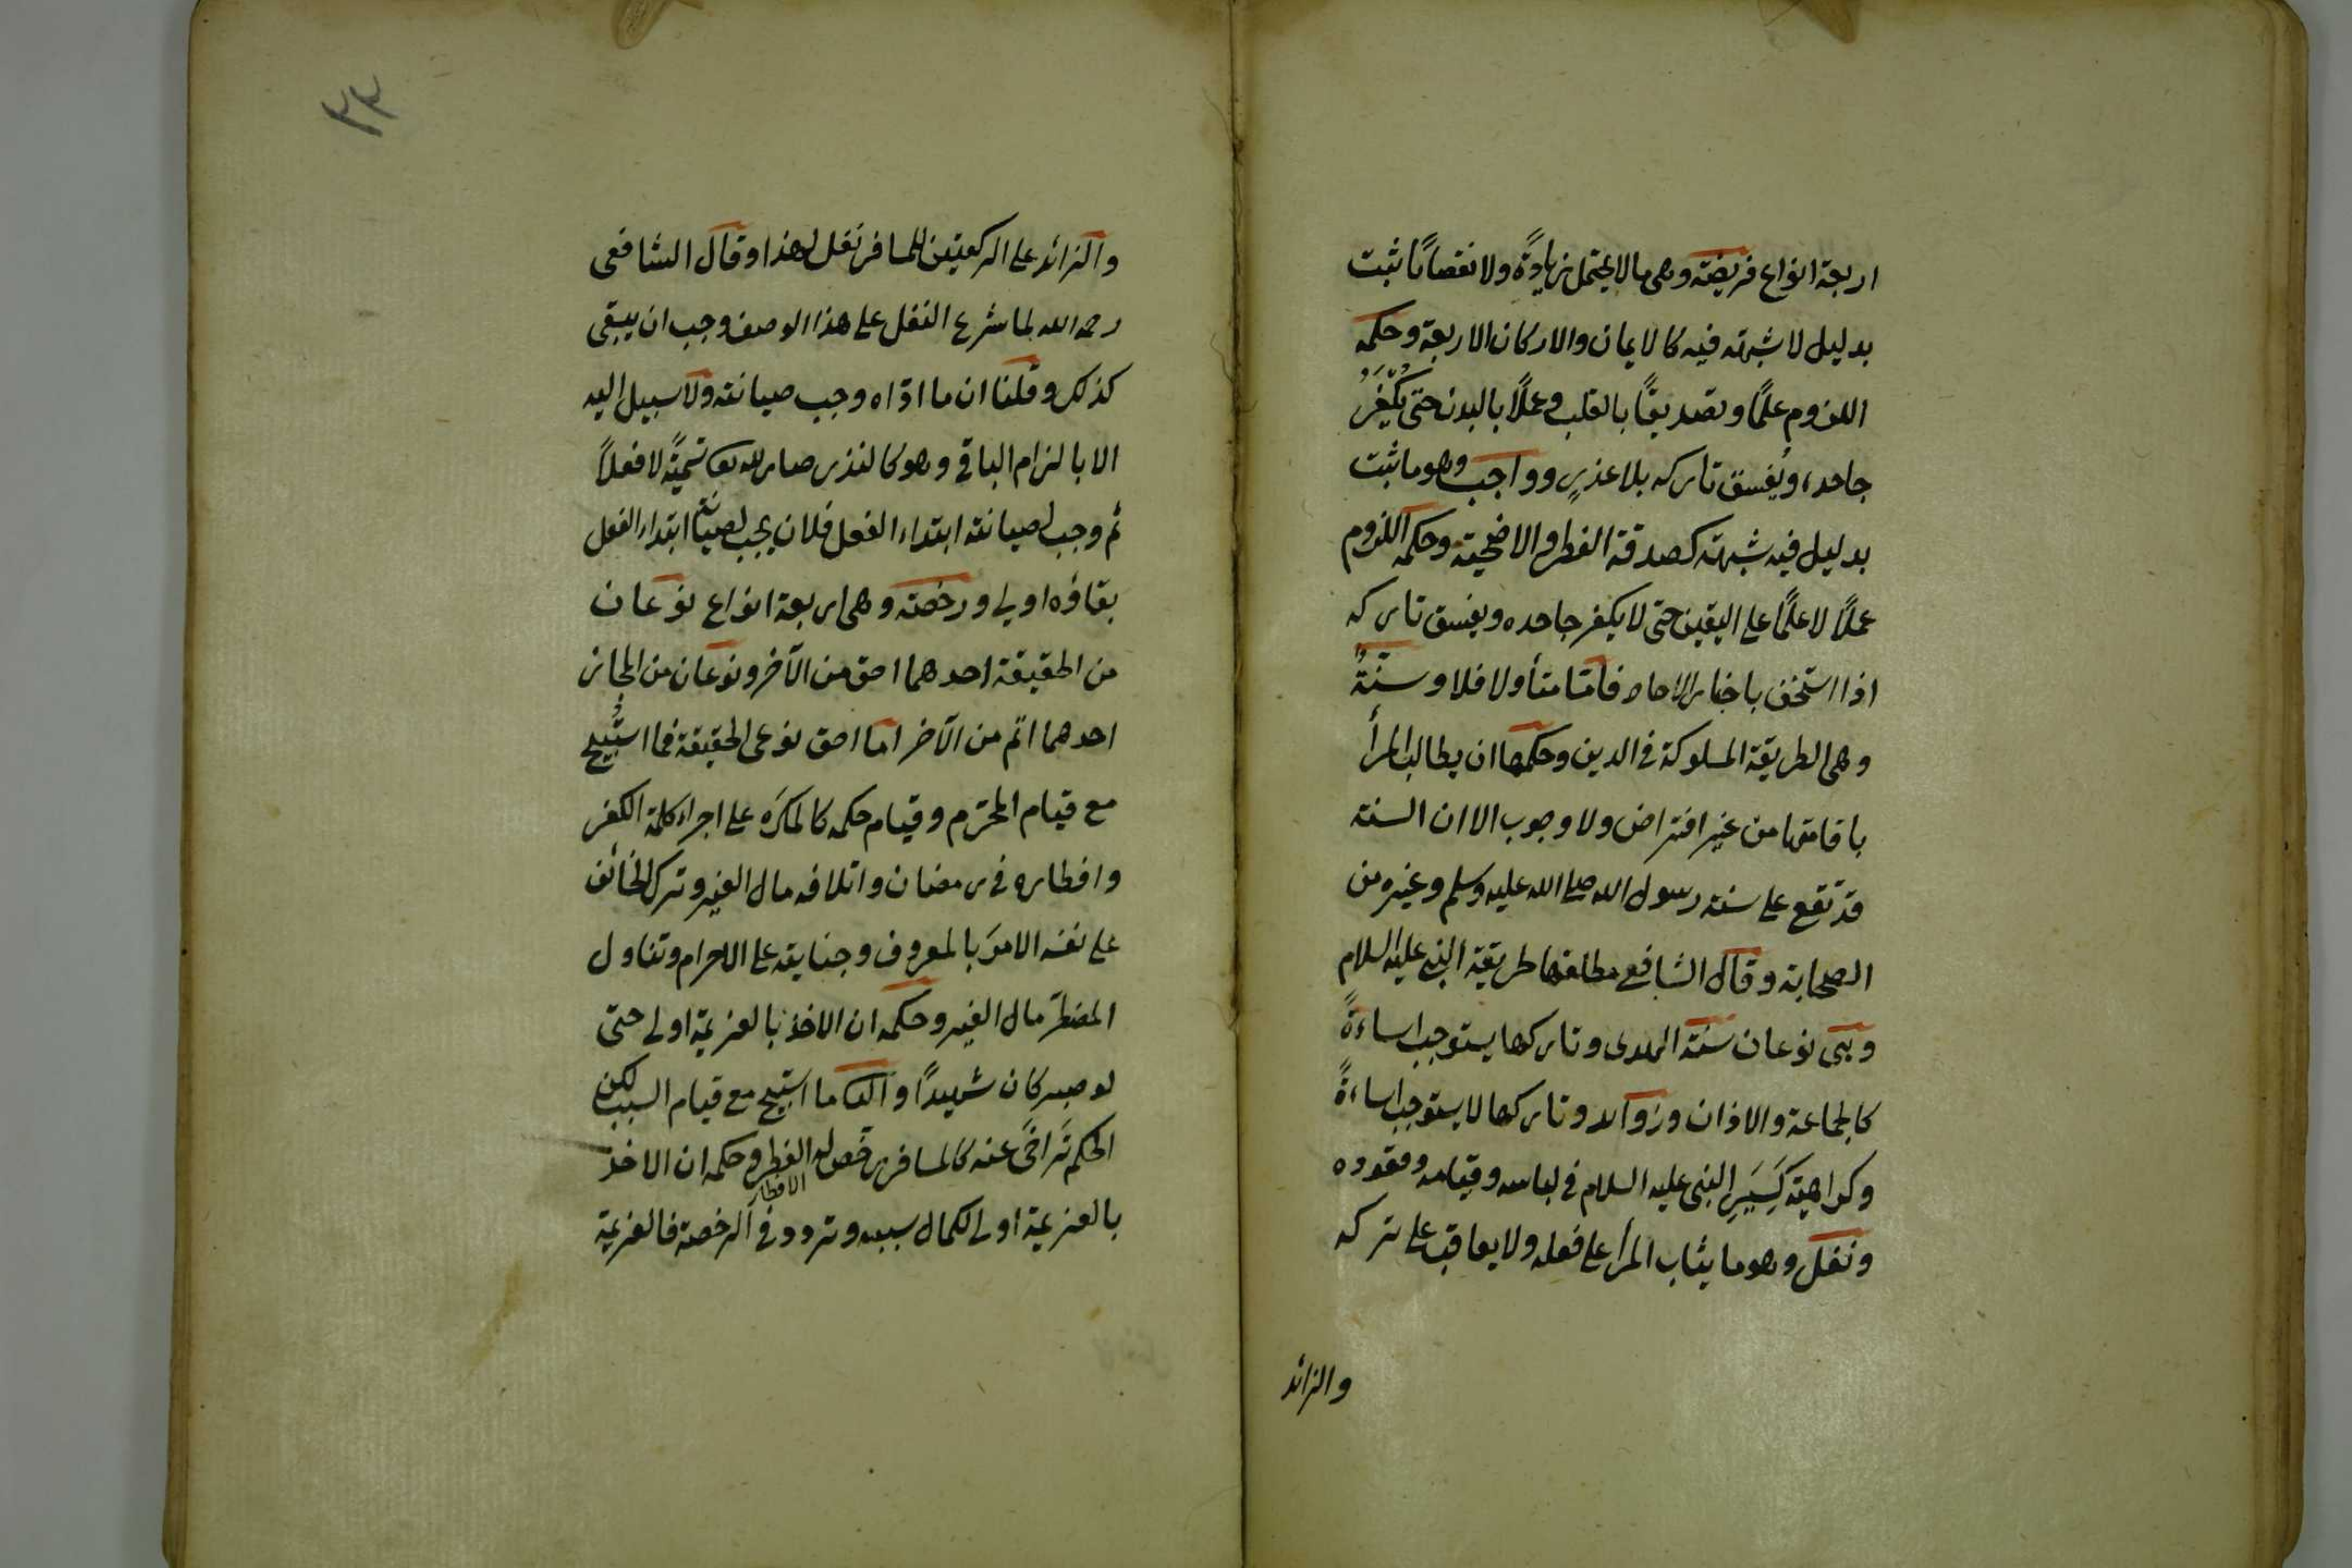 اربعة انواع فريضة وهى ما لا يحتمل زيادةً ولا نقصانًا ثبت
بدليل لا شبهة فيه كالايمان والاركان الاربعة وحكمه
اللزوم علمًا وتصديقًا بالقلب وعملًا بالبدن حتى يُكَفَّرُ
جاحده ويُفسق تاركه بلا عذرٍ وواجب وهو ما ثبت
بدليل فيه شبهة كصدقة الفطر والاضحية وحكمه اللزوم
عملًا لا علمًا على اليقين حتى لا يكفر جاحده ويفسق تاركه
اذا استخف باخبار الاحاد فاما متأولا فلا وسنّةٌ
وهى الطريقة المسلوكة فى الدين وحكمها ان يطالب المرأ
باقامتها من غير افتراض ولا وجوب الا ان السنة
قد تقع على سنة رسول الله صلى الله عليه وسلم وغيره من
الصحابة وقال الشافعى مطلقها طريقة النبى عليه السلام
وهى نوعان سنة الهدى وتاركها يستوجب اساءةً
كالجماعة والاذان وزوائد وتاركها لا يستوجب اساءةً
وكراهية كَسِيَرِ النبى عليه السلام فى لباسه وقيامه وقعوده
ونفل وهو ما يثاب المرأ على فعله ولا يعاقب على تركه
والزائد
٢٣
والزائد على الركعتين للمسافر نفل لهذا وقال الشافعى
رحمه الله لما شرع النفل على هذا الوصف وجب ان يبقى
كذلك وقلنا ان ما ادّاه وجب صيانته ولا سبيل اليه
الا بالزام الباقى وهو كالنذر صار لله تعا تسميةً لا فعلًا
ثم وجب لصيانته ابتداء الفعل فلان يجب لصيانة ابتداء الفعل
بقاؤه اولى ورخصة وهى اربعة انواع نوعان
من الحقيقة احدهما احق من الآخر ونوعان من المجاز
احدهما اتم من الآخر اما احق نوعى الحقيقة فما استُبيح
مع قيام المحرّم وقيام حكمه كالمكرَه على اجراء كلمة الكفر
وافطاره فى رمضان واتلافه مال الغير وترك الخائف
على نفسه الامرَ بالمعروف وجنايته على الاحرام وتناول
المضطرّ مال الغير وحكمه ان الاخذ بالعزيمة اولى حتى
لو صبر كان شهيدًا والثانى ما استبيح مع قيام السبب لكن
الحكم تَراخَى عنه كالمسافر رخص له الفطر وحكمه ان الاخذ
الافطار
بالعزيمة اولى لكمال سببه وتردد فى الرخصة فالعزيمة